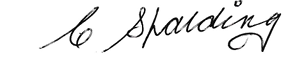 C Spalding